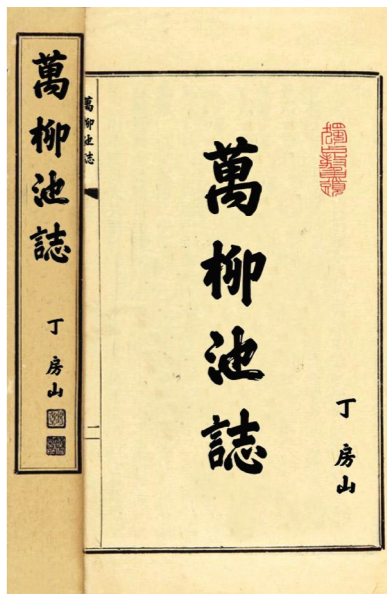 萬柳池誌
丁房山
萬柳池誌
二
萬柳池誌
丁房山